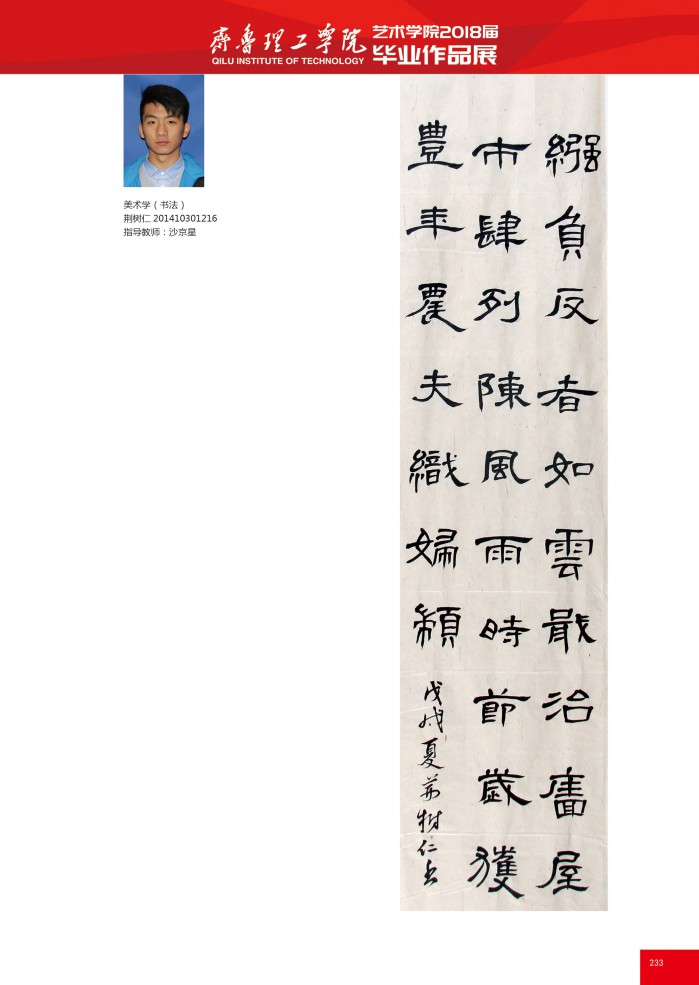 齊魯理工學院
QILU INSTITUTE OF TECHNOLOGY
艺术学院2018届
毕业作品展
美术学（书法）
荆树仁 201410301216
指导教师：沙京星
繈負反者如雲戢治廬屋
市肆列陳風雨時節歲獲
豊年農夫織婦
戊戌夏荆樹仁书
233